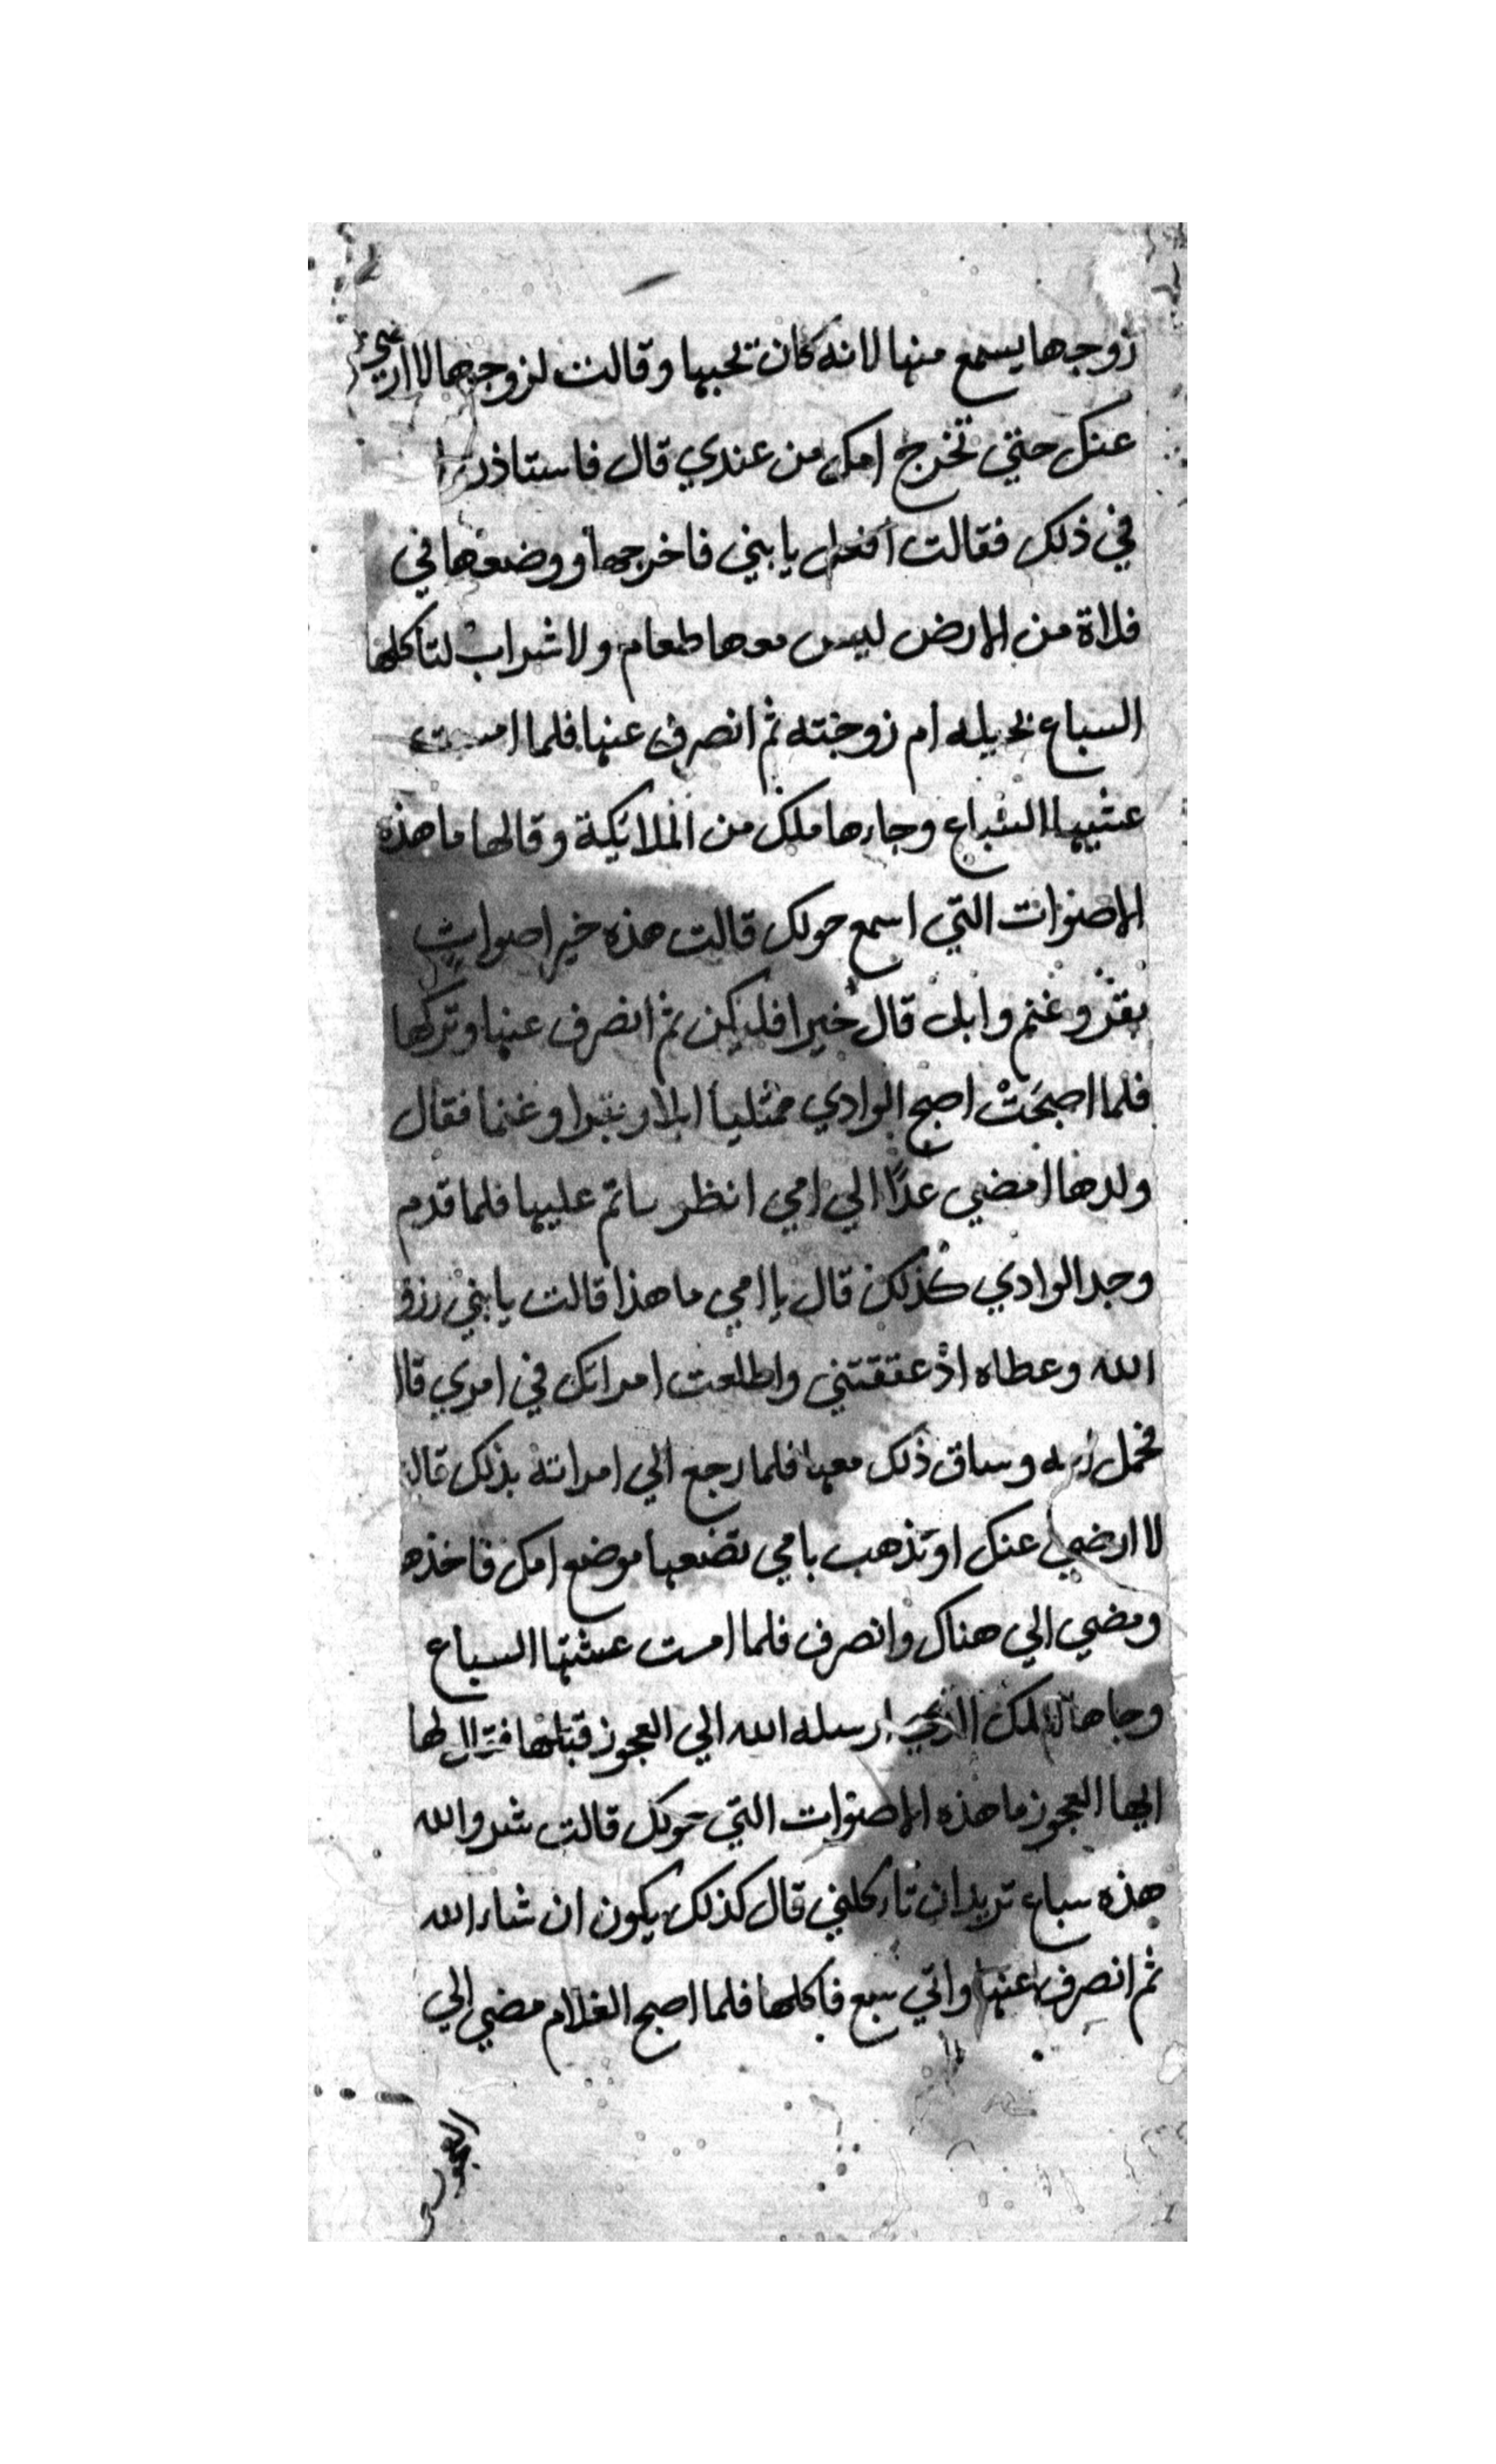 زوجها يسمع منها لانه كان تحبها وقالت لزوجها لا ارضي
عنك حتي تخرج امك من عندي قال فاستاذن
في ذلك فقالت افعل يا بني فاخرجها ووضعها في
فلاة من الارض ليس معها طعام ولا شراب لتأكلها
السباع بحيله ام زوجته ثم انصرف عنها فلما امست
عشيها السباع وجاءها ملك من الملائكة وقالها ما هذه
الاصوات التي اسمع حولك قالت هذه خير اصوات
بقر وغنم وابل قال خيرا فليكن ثم انصرف عنها وتركها
فلما اصبحت اصبح الوادي ممتليا ابلا وبقرا وغنما فقال
ولدها امضي غدًا الي امي انظر ما تم عليها فلما قدم
وجد الوادي كذلك قال يا امي ما هذا قالت يا بني رزق
الله وعطاه اذ عققتني واطلعت امراتك في امري قال
فحمل امه وساق ذلك معها فلما رجع الي امراته بذلك قالت
لا ارضي عنك او تذهب بامي تضعها موضع امك فاخذها
ومضي الي هناك وانصرف فلما امست عشتها السباع
وجاها الملك الذي ارسله الله الي العجوز قبلها فقال لها
ايها العجوز ما هذه الاصوات التي حولك قالت شر والله
هذه سباع تريد ان تاكلني قال كذلك يكون ان شاء الله
ثم انصرف عنها واتي سبع فاكلها فلما اصبح الغلام مضي الي
العجوز